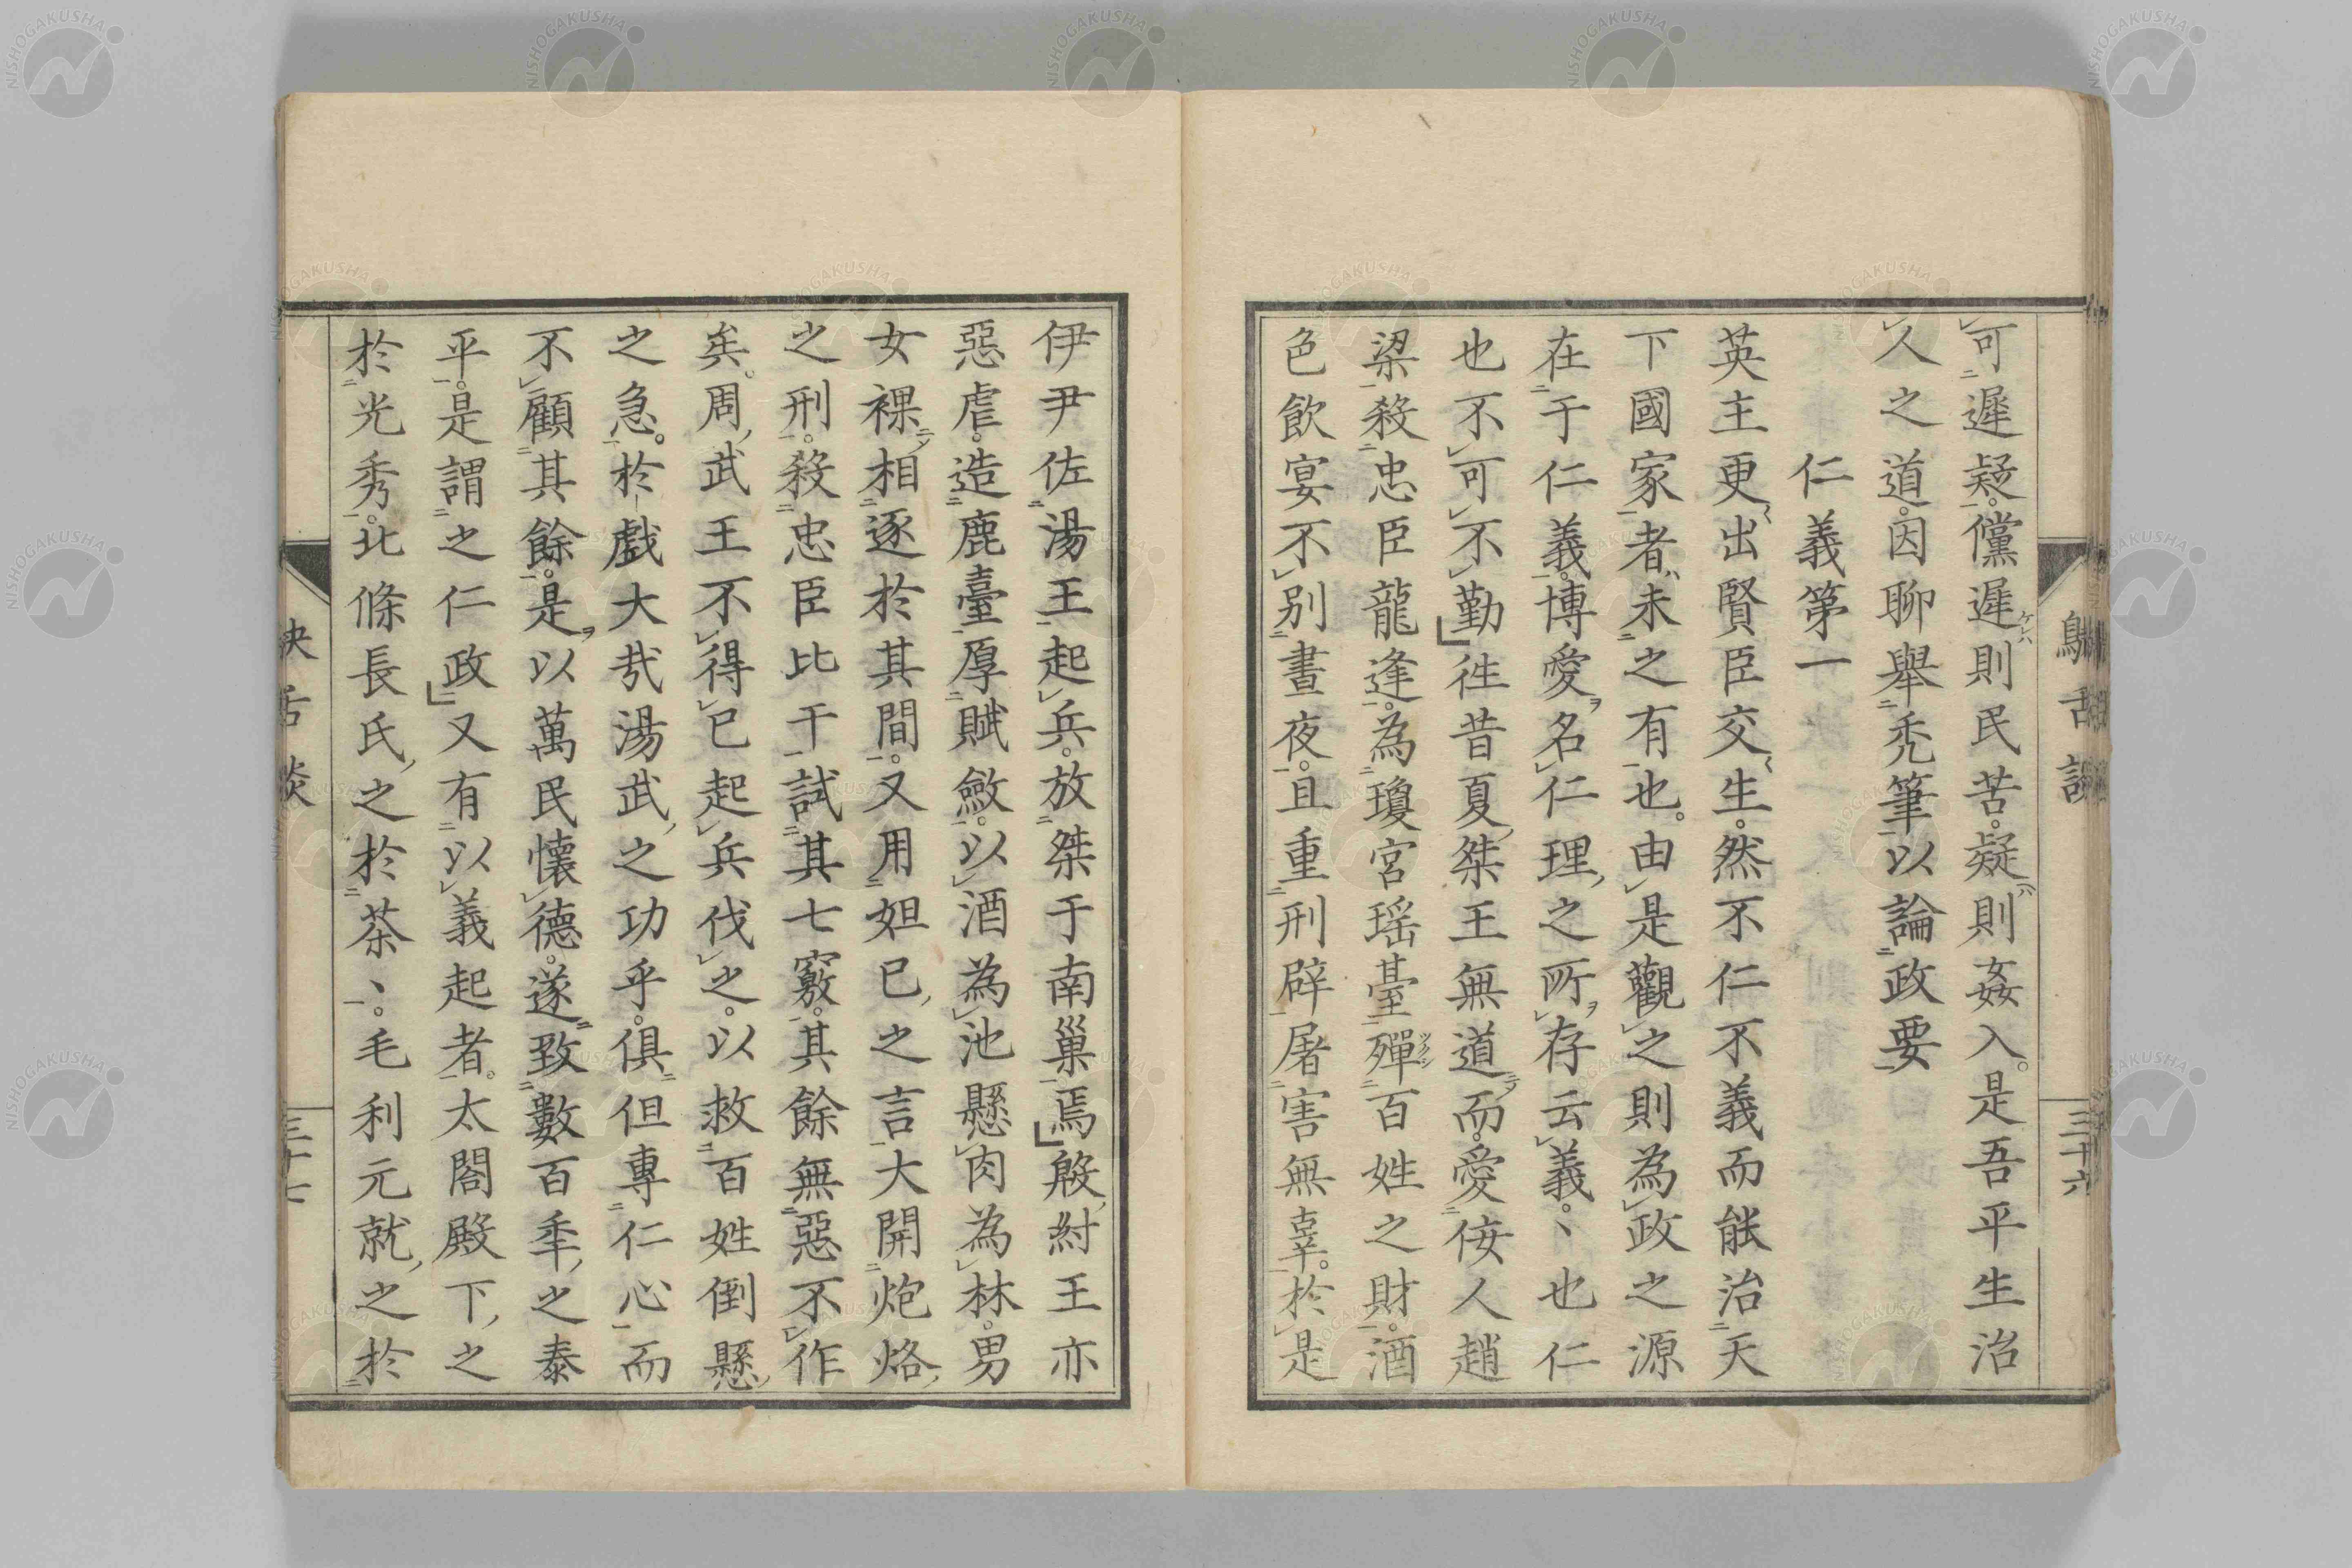 可遲疑。儻遲則民苦。疑則姦入。是吾平生治
人之道。因聊舉禿筆以論政要
仁義第一
英主更出賢臣交生。然不仁不義而能治天
下國家者未之有也。由是觀之則為政之源
在于仁義。博愛名仁理之所存云義。丶也仁
也不可不勤 徃昔夏桀王無道而。愛佞人趙
梁殺忠臣龍逢。為瓊宮瑶臺殫百姓之財。酒
色飲宴不別晝夜。且重刑辟屠害無辜。於是
伊尹佐湯王起兵。放桀于南巢焉 殷紂王亦
惡虐。造鹿臺厚賦斂。以酒為池懸肉為林。男
女裸相逐於其間。又用妲已之言大開炮烙
之刑。殺忠臣比干試其七竅。其餘無惡不作
矣。周武王不得已起兵伐之。以救百姓倒懸
之急。於戲大哉湯武之功乎。俱但專仁心而
不顧其餘。是以萬民懷德。遂致數百秊之泰
平。是謂之仁政 又有以義起者。太閤殿下之
於光秀。北條長氏之於茶丶。毛利元就之於
鴃舌
三十六
舌談
三十七
NISHOGAKUSHA